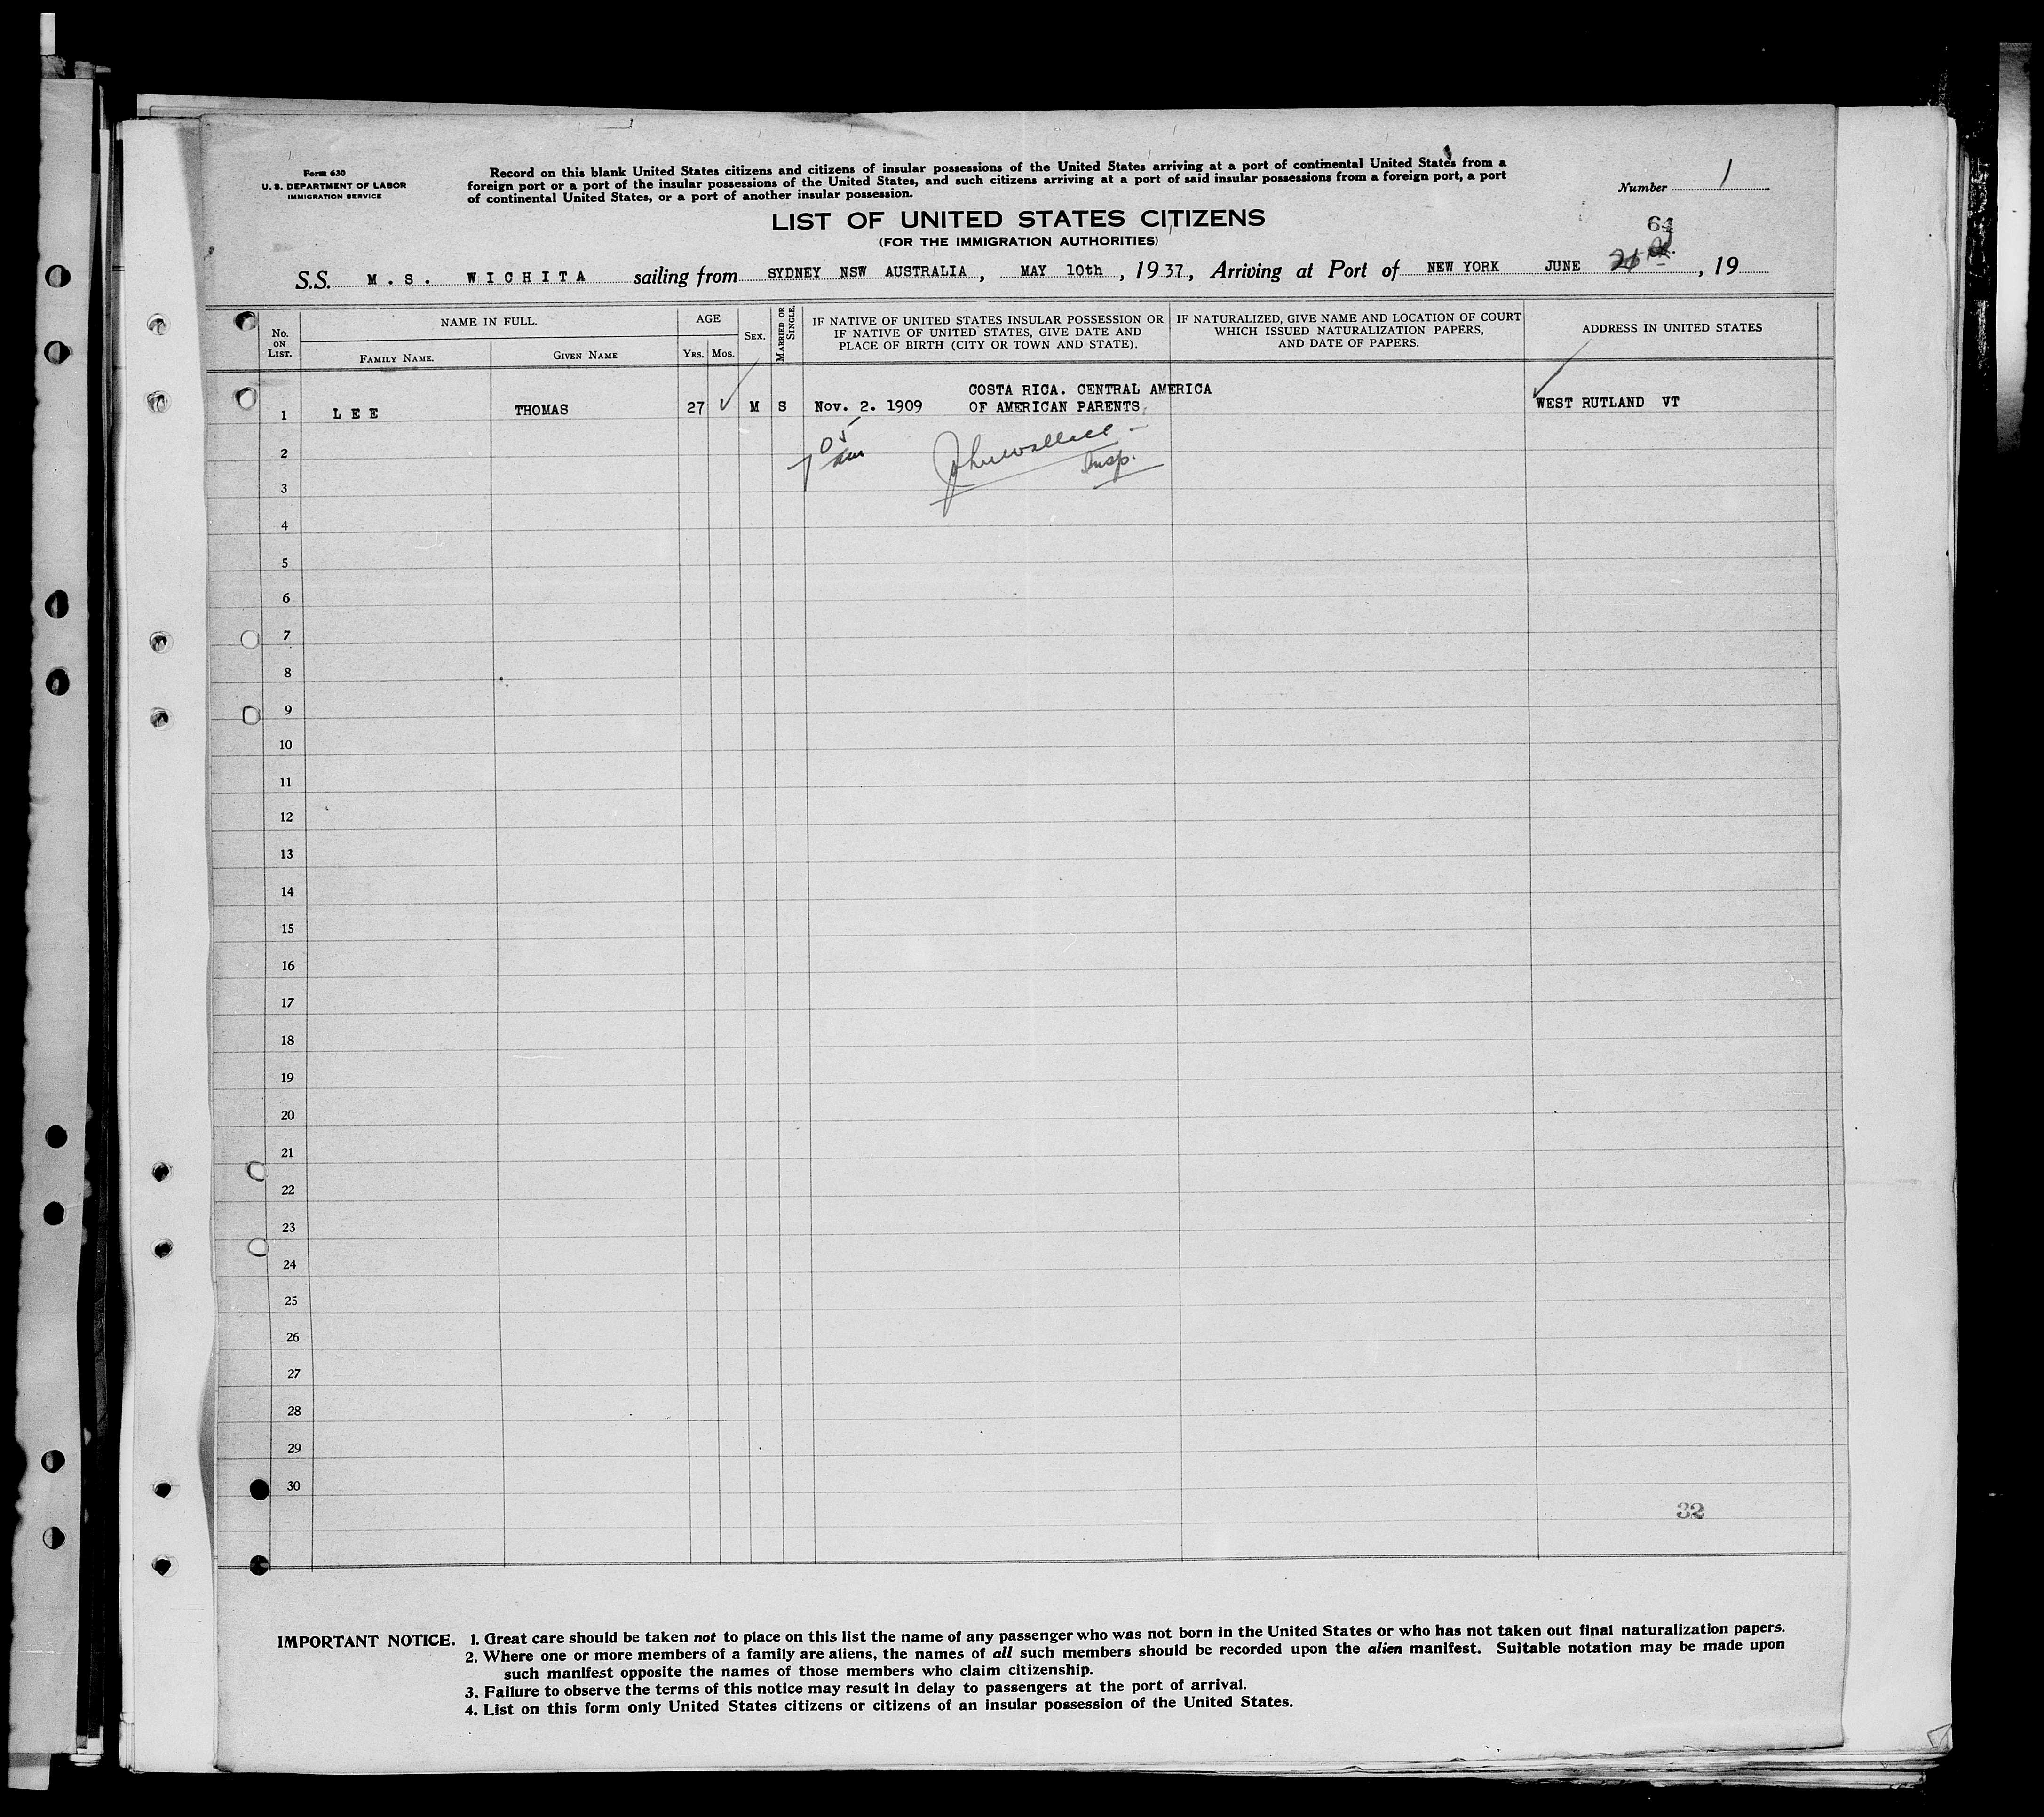 Form 630
U. S. DEPARTMENT OF LABOR
IMMIGRATION SERVICE
Record on this blank United States citizens and citizens of insular possessions of the United States arriving at a port of continental United States from a
foreign port or a port of the insular possessions of the United States, and such citizens arriving at a port of said insular possessions from a foreign port, a port
of continental United States, or a port of another insular possession.
Number 1
LIST OF UNITED STATES CITIZENS
(FOR THE IMMIGRATION AUTHORITIES)
S.S. M. S. WICHITA sailing from SYDNEY NSW AUSTRALIA, MAY 10th, 1937, Arriving at Port of NEW YORK JUNE , 19
No. ON LIST.
NAME IN FULL.
FAMILY NAME.
GIVEN NAME
AGE
Yrs. Mos.
SEX.
MARRIED OR SINGLE.
IF NATIVE OF UNITED STATES INSULAR POSSESSION OR
IF NATIVE OF UNITED STATES, GIVE DATE AND
PLACE OF BIRTH (CITY OR TOWN AND STATE).
IF NATURALIZED, GIVE NAME AND LOCATION OF COURT
WHICH ISSUED NATURALIZATION PAPERS,
AND DATE OF PAPERS.
ADDRESS IN UNITED STATES
COSTA RICA. CENTRAL AMERICA
1 LEE THOMAS 27 M S Nov. 2. 1909 OF AMERICAN PARENTS WEST RUTLAND VT
John Wallace
2 Insp.
3
4
5
6
7
8
9
10
11
12
13
14
15
16
17
18
19
20
21
22
23
24
25
26
27
28
29
30
32
IMPORTANT NOTICE. 1. Great care should be taken not to place on this list the name of any passenger who was not born in the United States or who has not taken out final naturalization papers.
2. Where one or more members of a family are aliens, the names of all such members should be recorded upon the alien manifest. Suitable notation may be made upon
such manifest opposite the names of those members who claim citizenship.
3. Failure to observe the terms of this notice may result in delay to passengers at the port of arrival.
4. List on this form only United States citizens or citizens of an insular possession of the United States.